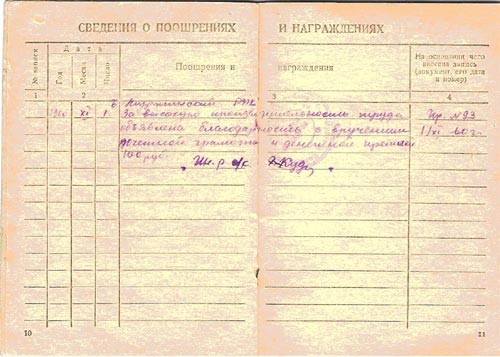 СВЕДЕНИЯ О ПООЩРЕНИЯХ И НАГРАЖДЕНИЯХ
№ записи
Дата
Год
Месяц
Число
Поощрения и награждения
На основании чего внесена запись (документ, его дата и номер)
1 2 3 4
1960 XI 1 За высокую производительность труда Пр. № 93
объявлена благодарность с вручением 1/XI 60 г.
почетной грамоты и денежной премии
100 руб.
10 11